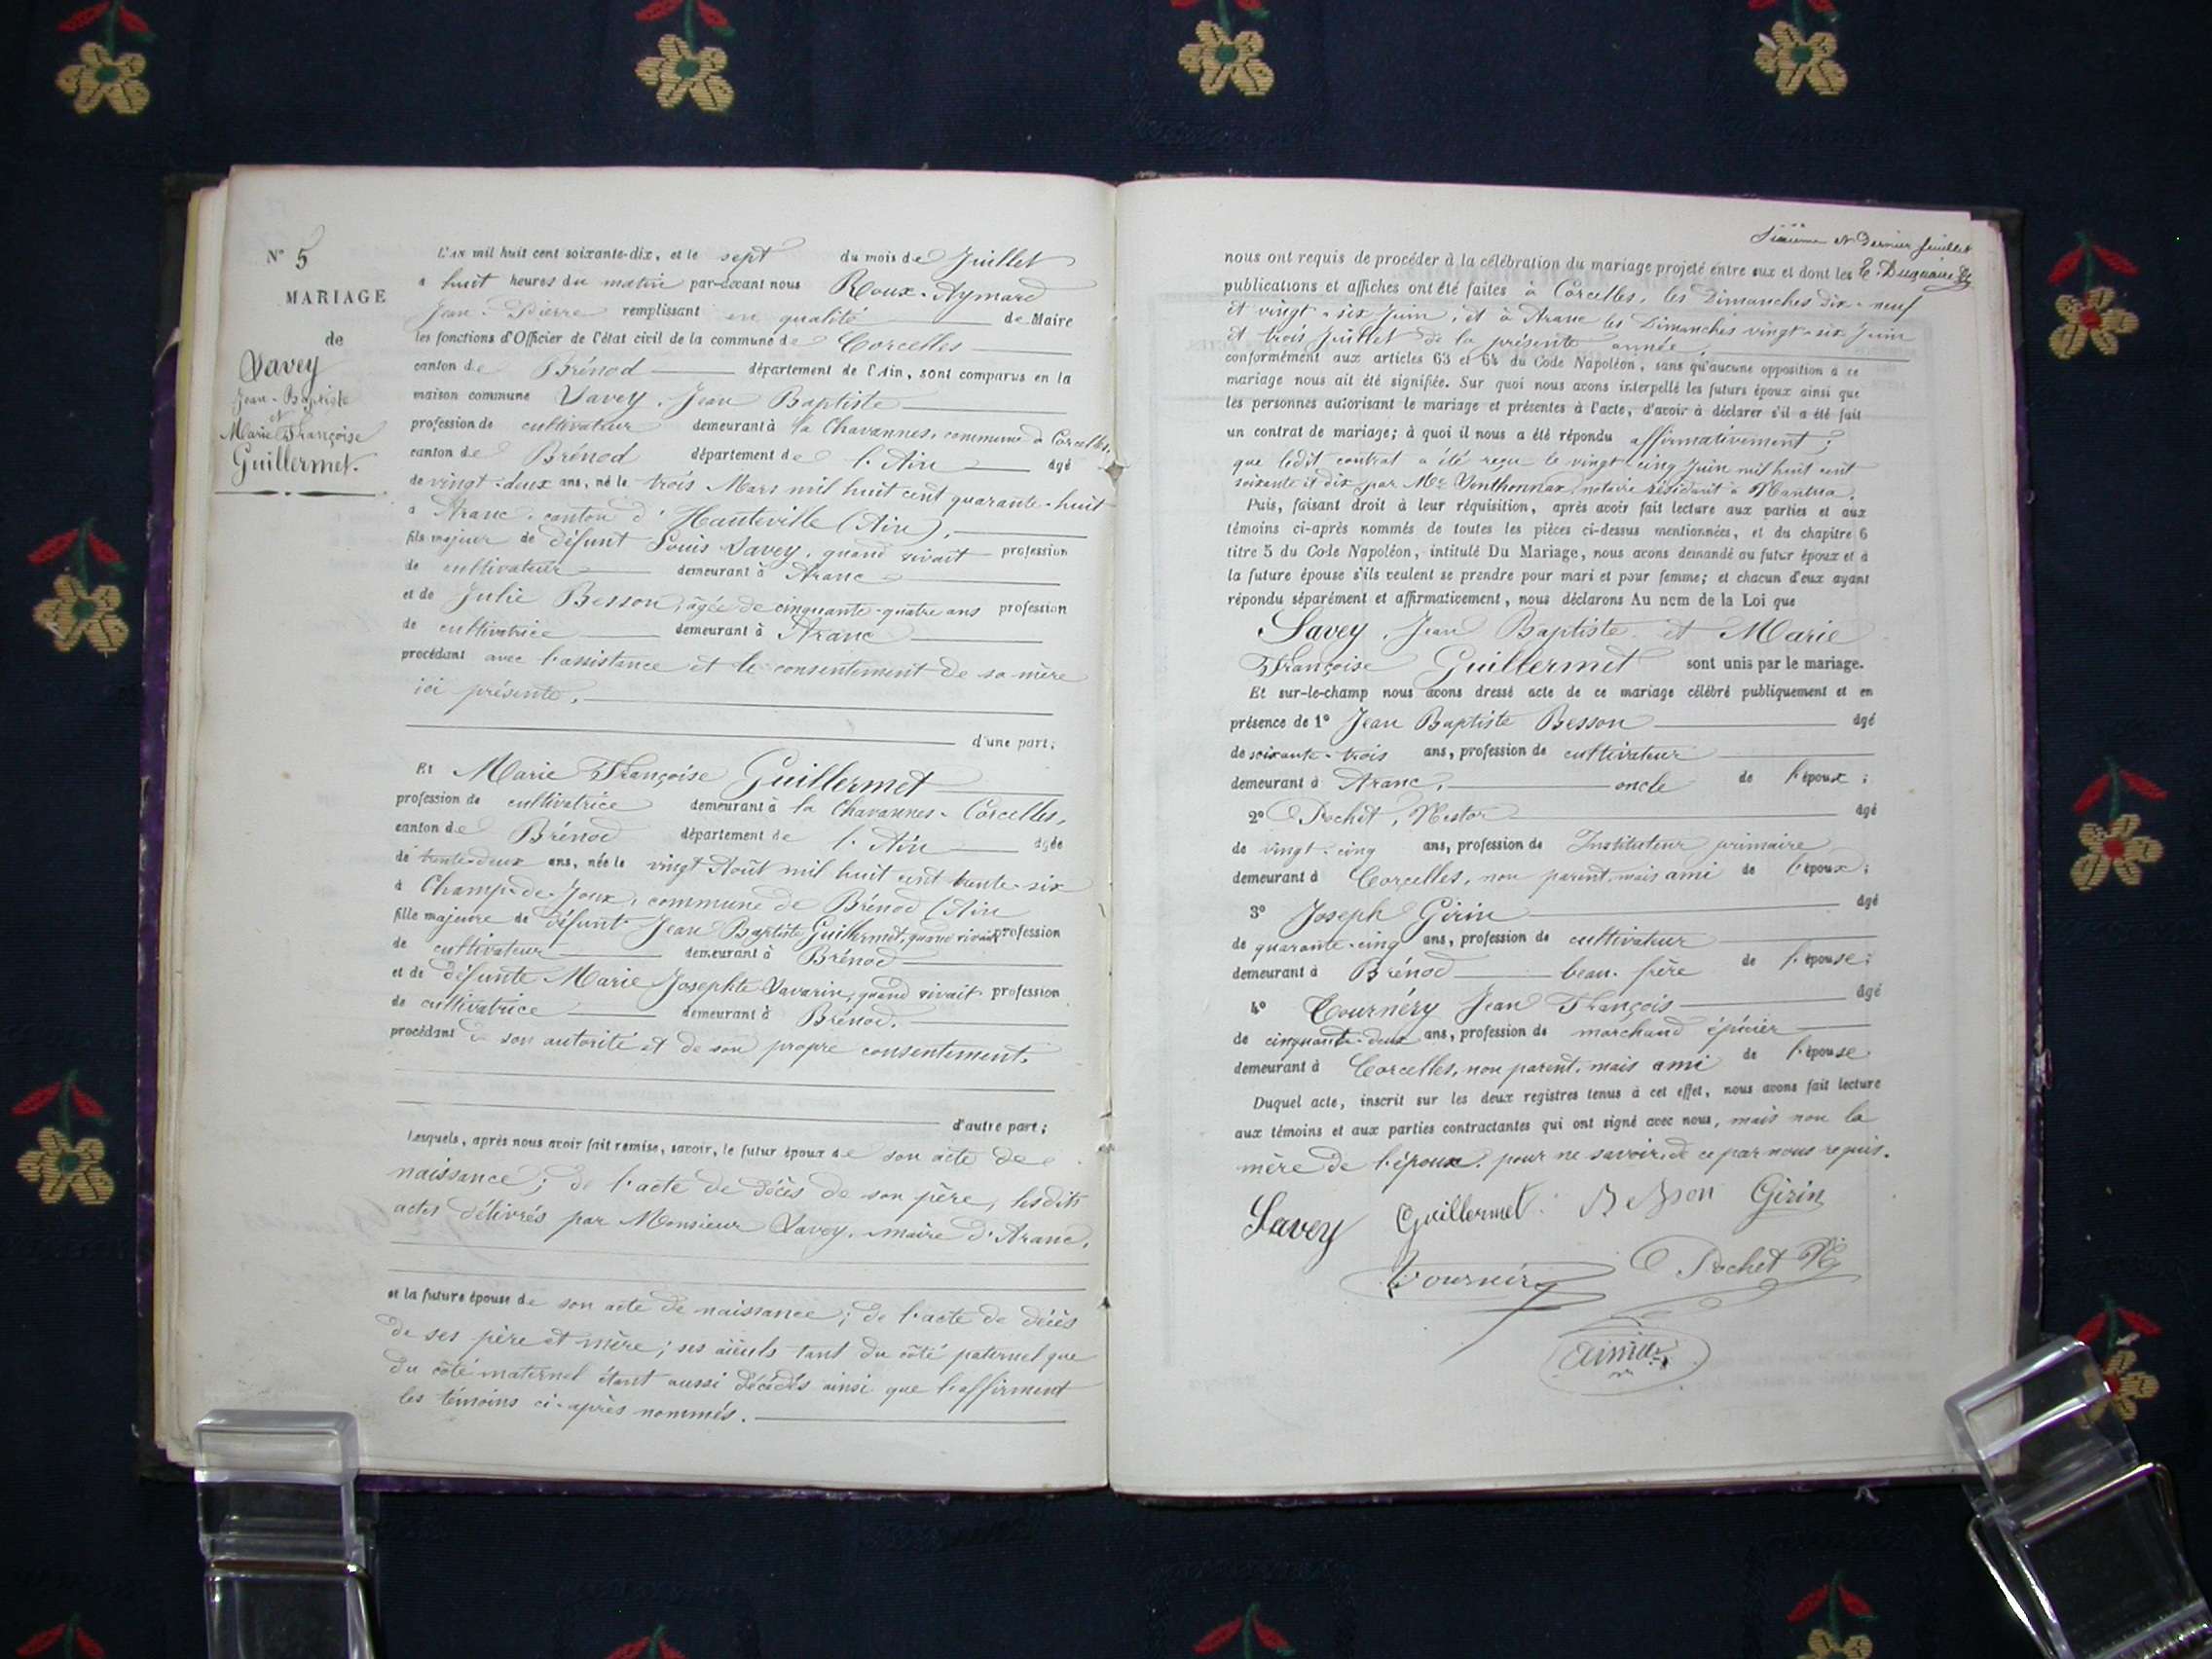 N° 5
MARIAGE
de
Savey
Jean-Baptiste
et
Marie Françoise
Guillermet.
L'AN mil huit cent soixante-dix, et le sept du mois de Juillet
a huit heures du matin par-devant nous Roux-Aymard
Jean-Pierre remplissant en qualité de Maire
les fonctions d'Officier de l'état civil de la commune de Corcelles
canton de Brénod département de l'Ain, sont comparus en la
maison commune Savey, Jean Baptiste
profession de cultivateur demeurant à la Chavannes, commune de Corcelles,
canton de Brénod département de l'Ain âgé
de vingt-deux ans, né le trois Mars mil huit cent quarante-huit
a Aranc, canton d'Hauteville (Ain),
fils majeur de défunt Louis Savey, quand vivait profession
de cultivateur demeurant à Aranc
et de Julie Besson, âgée de cinquante-quatre ans profession
de cultivatrice demeurant à Aranc
procédant avec l'assistance et le consentement de sa mère
ici présente,
d'une part;
Et Marie Françoise Guillermet
profession de cultivatrice demeurant à la Chavannes-Corcelles,
canton de Brénod département de l'Ain âgée
de trente-deux ans, née le vingt Août mil huit cent trente-six
à Champ-de-Joux, commune de Brénod (Ain
fille majeure de défunt Jean Baptiste Guillermet, quand vivait profession
de cultivateur demeurant à Brénod
et de défunte Marie Josephte Savarin, quand vivait profession
de cultivatrice demeurant à Brénod.
procédant de son autorité et de son propre consentement.
d'autre part;
Lesquels, après nous avoir fait remise, savoir, le futur époux de son acte de
naissance; de l'acte de décès de son père, lesdits
actes délivrés par Monsieur Savey, maire d'Aranc.
et la future épouse de son acte de naissance; de l'acte de décès
de ses père et mère; ses aïeuls tant du côté paternel que
du côté maternel étant aussi décédés ainsi que l'affirment
les témoins ci-après nommés.
Sixième et Dernier feuillet
nous ont requis de procéder à la célébration du mariage projeté entre eux et dont les
publications et affiches ont été faites à Corcelles, les Dimanches dix-neuf
et vingt-six Juin, et à Aranc les Dimanches vingt-six Juin
et trois Juillet de la présente année,
conformément aux articles 63 et 64 du Code Napoléon, sans qu'aucune opposition à ce
mariage nous ait été signifiée. Sur quoi nous avons interpellé les futurs époux ainsi que
les personnes autorisant le mariage et présentes à l'acte, d'avoir à déclarer s'il a été fait
un contrat de mariage; à quoi il nous a été répondu affirmativement;
que ledit contrat a été reçu le vingt-cinq Juin mil huit cent
soixante et dix par Me notaire résidant à
Puis, faisant droit à leur réquisition, après avoir fait lecture aux parties et aux
témoins ci-après nommés de toutes les pièces ci-dessus mentionnées, et du chapitre 6
titre 5 du Code Napoléon, intitulé Du Mariage, nous avons demandé au futur époux et à
la future épouse s'ils veulent se prendre pour mari et pour femme; et chacun d'eux ayant
répondu séparément et affirmativement, nous déclarons Au nom de la Loi que
Savey, Jean Baptiste et Marie
Françoise Guillermet sont unis par le mariage.
Et sur-le-champ nous avons dressé acte de ce mariage célébré publiquement et en
présence de 1° Jean Baptiste Besson âgé
de soixante-trois ans, profession de cultivateur
demeurant à Aranc, oncle de l'époux;
2° Prochet, Nestor âgé
de vingt-cinq ans, profession de Instituteur primaire
demeurant à Corcelles, non parent, mais ami de l'époux;
3° Joseph Girin âgé
de quarante-cinq ans, profession de cultivateur
demeurant à Brénod beau-frère de l'épouse;
4° Tournéry Jean François âgé
de cinquante-deux ans, profession de marchand épicier
demeurant à Corcelles, non parent, mais ami de l'épouse
Duquel acte, inscrit sur les deux registres tenus à cet effet, nous avons fait lecture
aux témoins et aux parties contractantes qui ont signé avec nous, mais non la
mère de l'époux, pour ne savoir, de ce par nous requis.
Savey Guillermet Besson Girin
Prochet